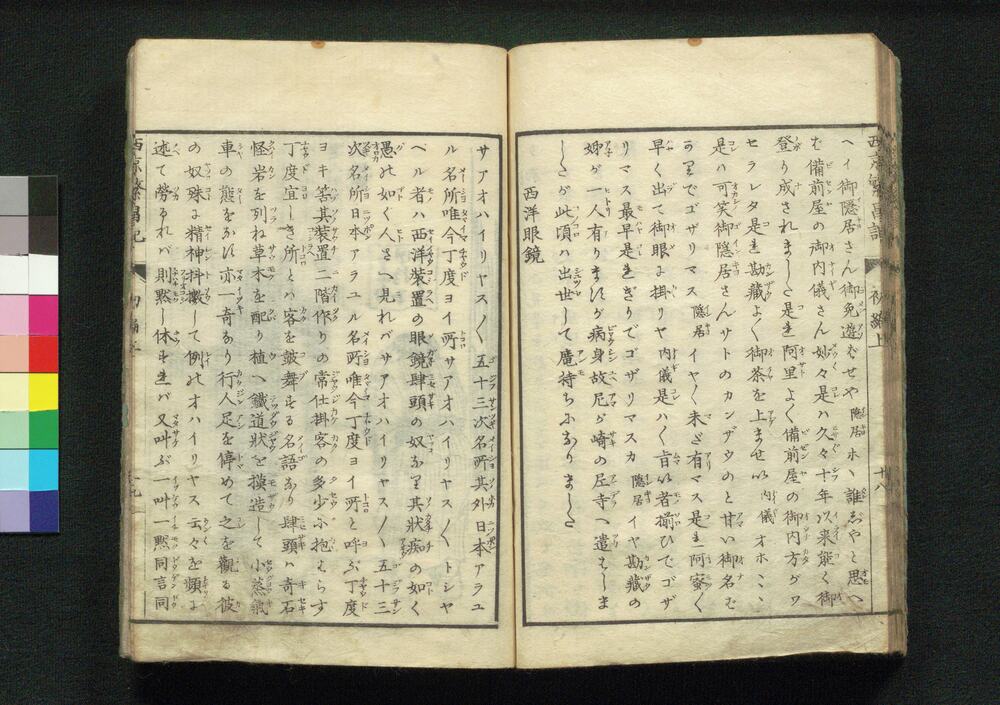 西京繁昌記 初編上 十八
ヘイ御隠居さん御免遊むせや 隠居 ホヽ誰ゑやと思ヘ
む備前屋の御内儀さん妙々是ハ久々十年以来能く御
登り成されました是ゟ阿里よく備前屋の御内方がワ
セラレタ是ゟ勘蔵よく御茶を上ませい 内儀 オホヽヽヽ
是ハ可笑御隠居さんサトのカンザウのと甘い御名む
かりでゴザリマス 隠居 イヤ〱未だ有マス是ゟ阿蜜〱
早く出て御眼よ掛リヤ 内儀 是ハ〱旨い者揃ひでゴザ
リマス最早是ぎりでゴザリマスカ 隠居 イヤ勘蔵の
姉が一人有りますが病身故尼が崎の尼寺へ遣むしま
したが此頃ハ出世して庵持ちになりました
西洋眼鏡
サアオハイリヤス〱五十三次名所其外日本アラユ
ル名所唯今丁度ヨイ所サアオハイリヤス〱トシヤ
ベル者ハ西洋装置の眼鏡肆頭の奴なり其状痴の如く
愚の如く人さへ見れバサアオハイリヤス〱五十三
次名所日本アラユル名所唯今丁度ヨイ所と呼ぶ丁度
ヨキ筈其装置二階作りの常仕掛客の多少に抱むらす
丁度宜しき所とハ客を皷舞する名語なり肆頭ハ奇石
怪岩を列ね草木を配り植へ鐵道状を摸造して小蒸氣
車の態をなす亦一奇なり行人足を停めて之を觀る彼
の奴殊よ精神掛襟して例のオハイリヤス云々を頻よ
述て勞るれバ則黙し休すれバ又叫ぶ一叫一黙同言同
西京繁昌記 初編上